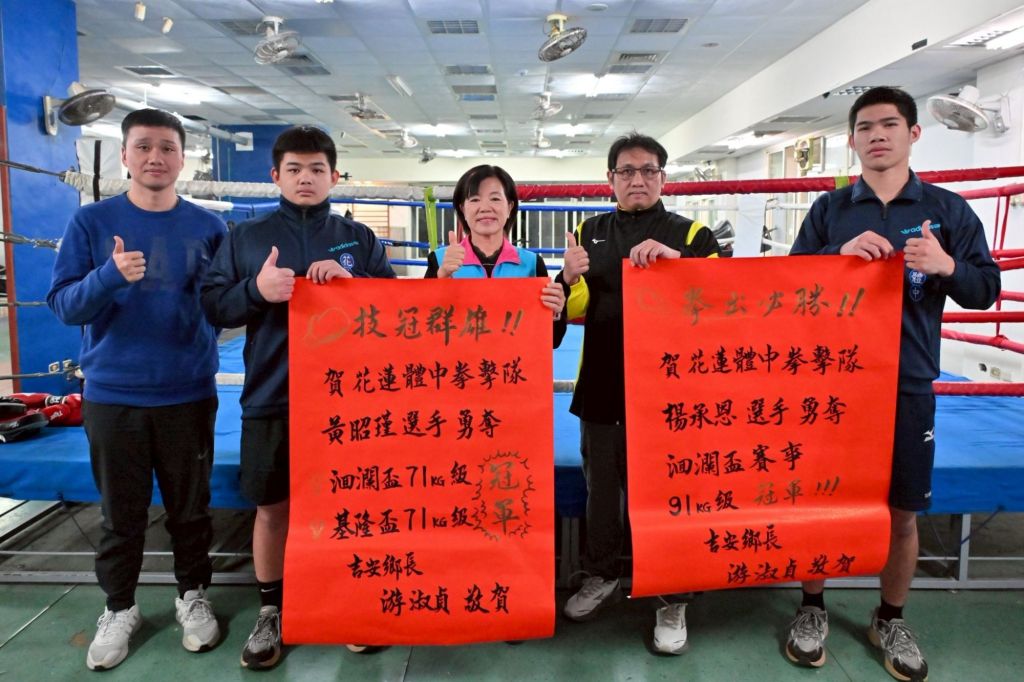 技冠群雄!!
賀花蓮體中拳擊隊
黃昭瑾選手勇奪
洄瀾盃71KG級
基隆盃71KG級
冠軍
吉安鄉長
游淑貞 敬賀
拳出必勝!!
賀花蓮體中拳擊隊
楊承恩選手勇奪
洄瀾盃賽事
91KG級 冠軍!!!
吉安鄉長
游淑貞 敬賀
adidas
花
adidas
體
中